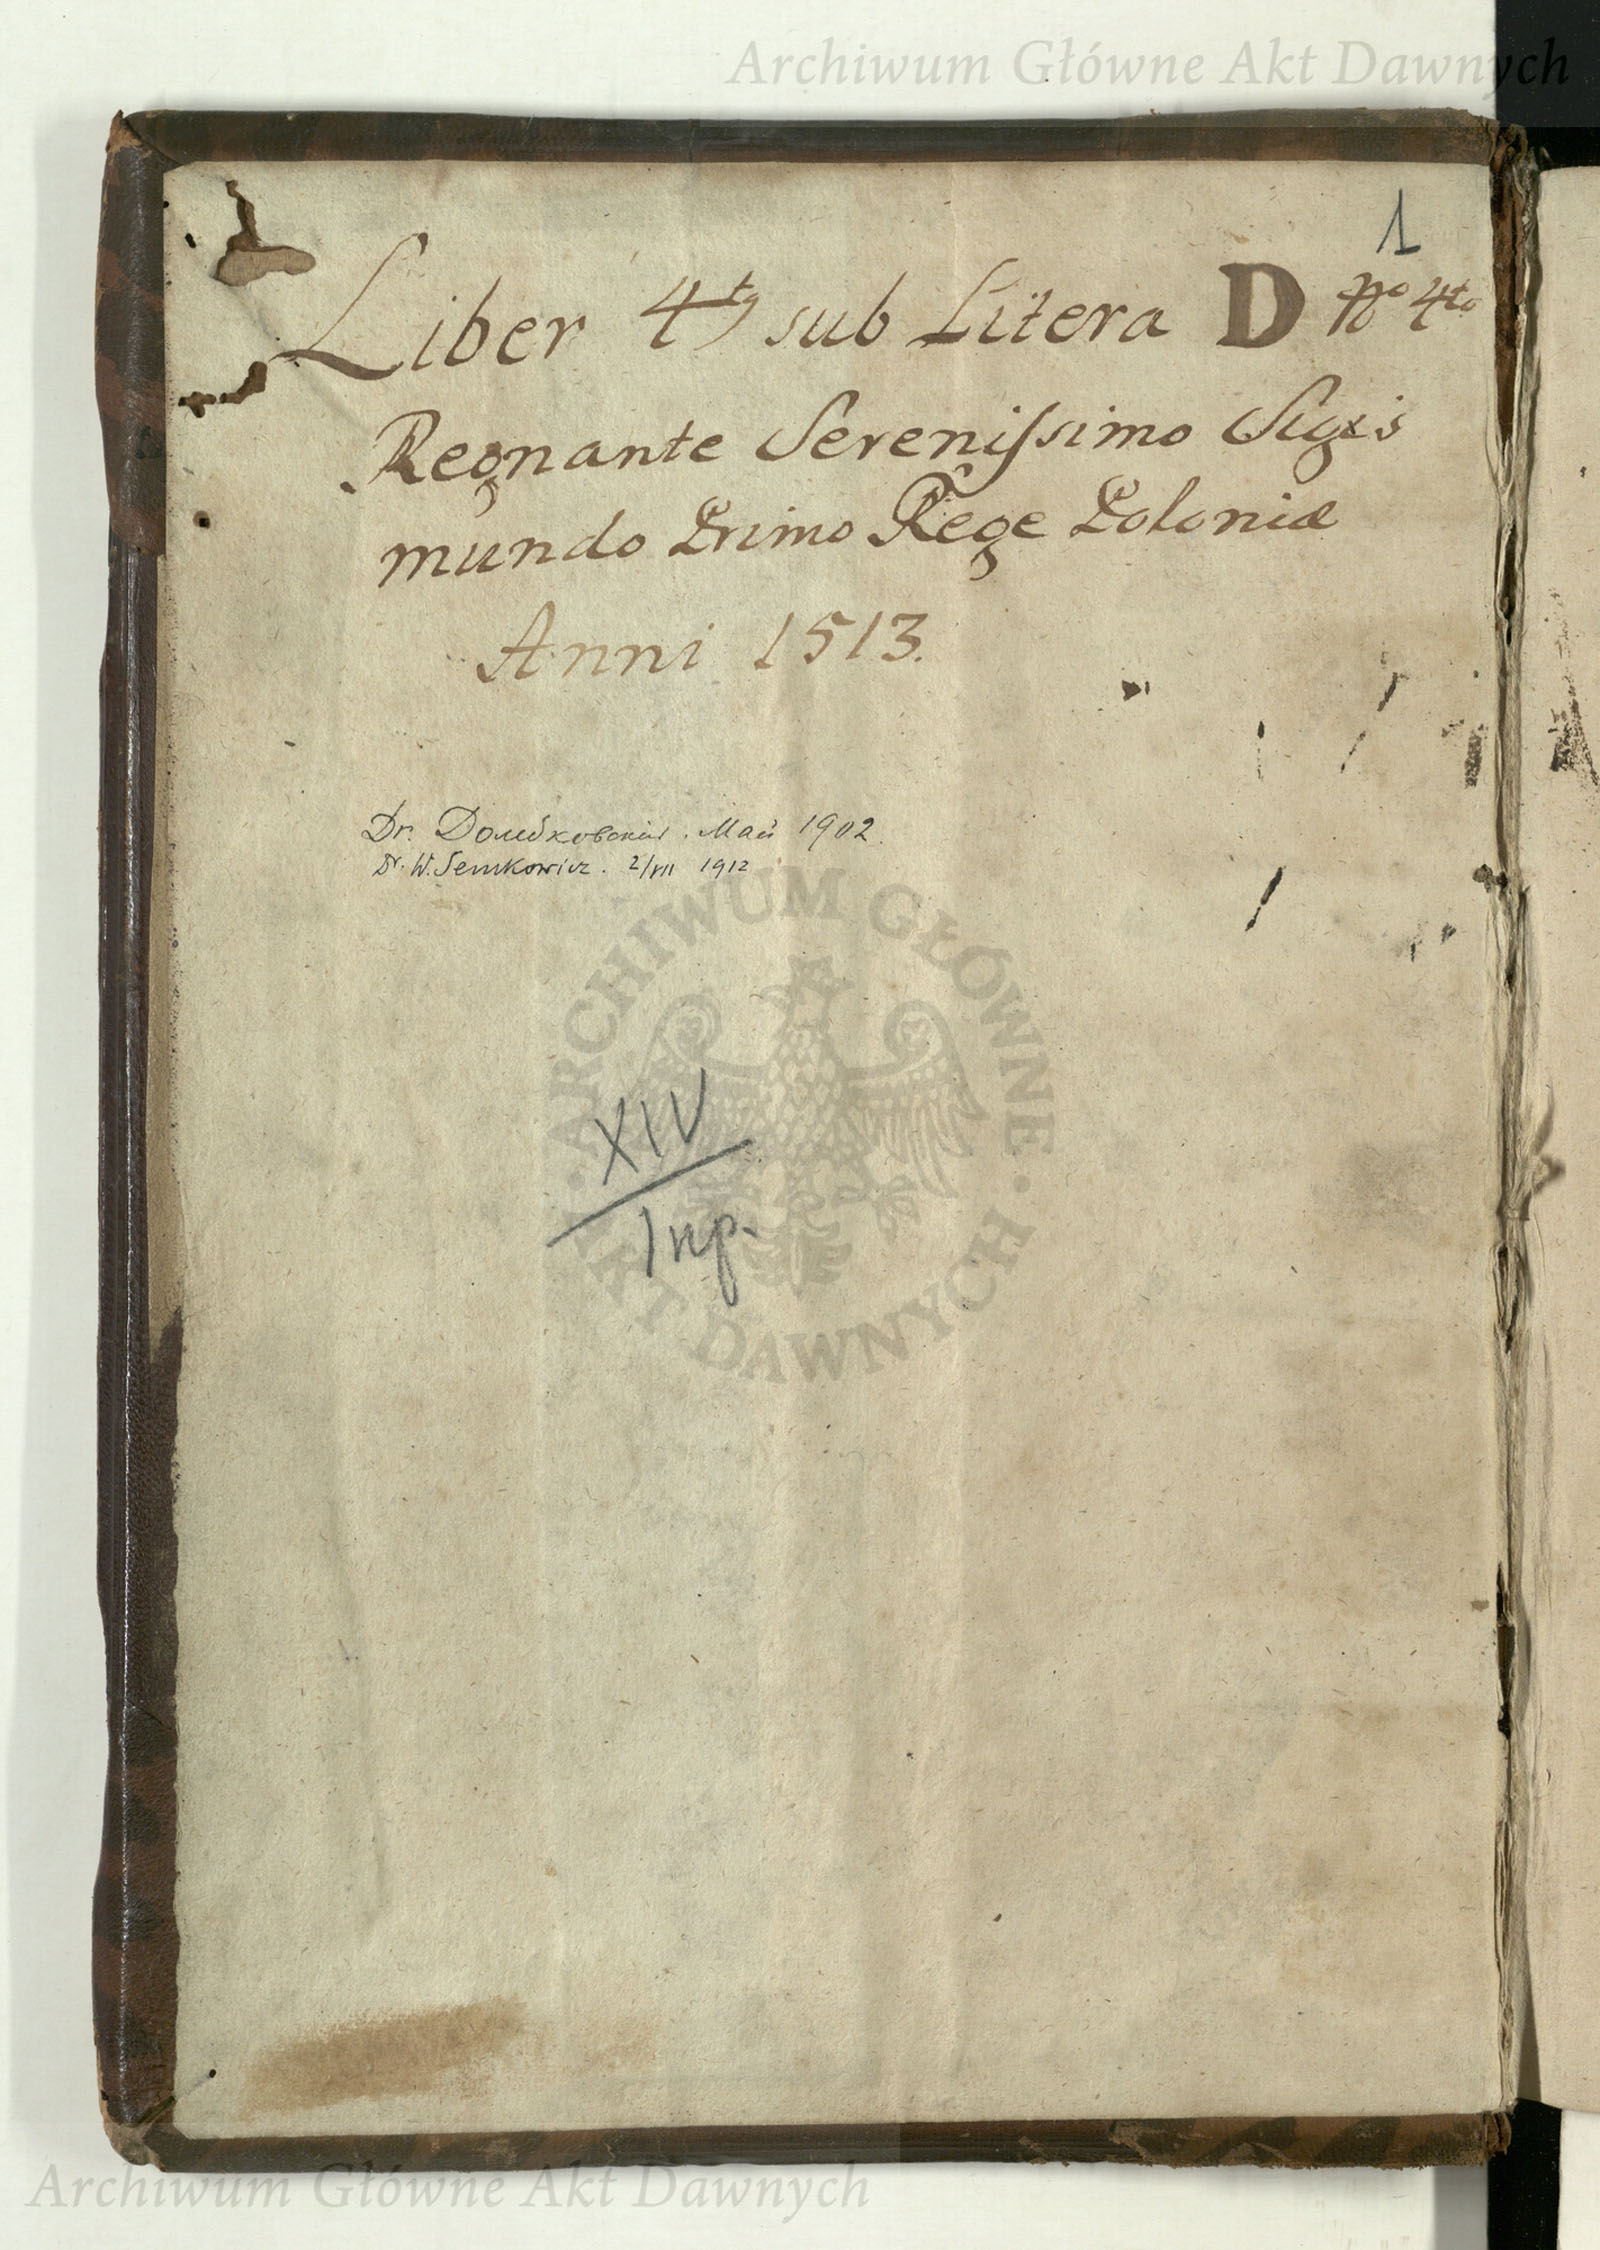 Archiwum Główne Akt Dawnych
1
Liber 4tꝰ sub Litera D No 4to
Regnante Sereniſsimo Sigis
mundo Primo Rege Poloniæ
Anni 1513.
Dr. . Май 1902.
Dr. W. Semkowicz. 2/VII 1912
ARCHIWUM GŁÓWNE · AKT DAWNYCH ·
XIV
Inp.
Archiwum Główne Akt Dawnych